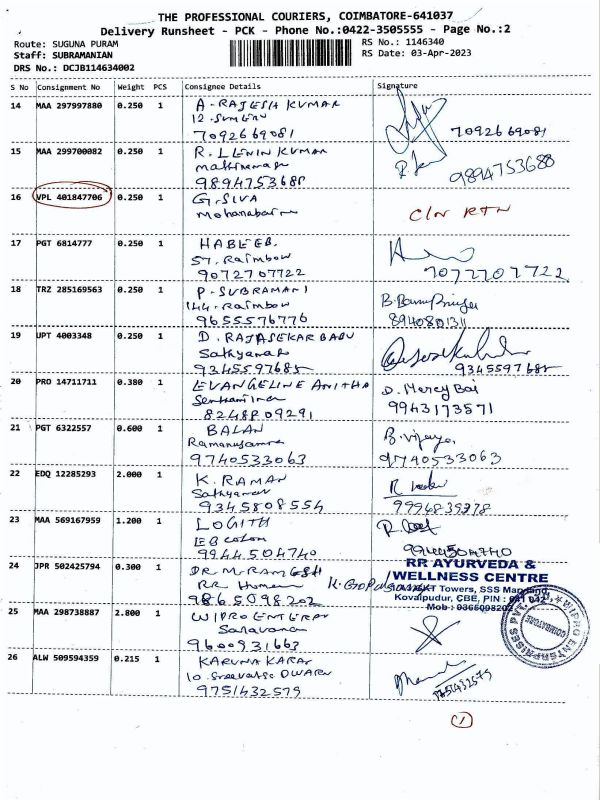 THE PROFESSIONAL COURIERS, COIMBATORE-641037
Delivery Runsheet - PCK - Phone No.:0422-3505555 - Page No.:2
Route: SUGUNA PURAM
RS No.: 1146340
Staff: SUBRAMANIAN
RS Date: 03-Apr-2023
DRS No.: DCJB114634002
S No Consignment No Weight PCS Consignee Details Signature
14 MAA 297997880 0.250 1 A. RAJESH KUMAR
12. SUMERU
7092669081 7092669081
15 MAA 299700082 0.250 1 R. LENIN KUMAR
9894753688 9894753688
16 VPL 401847706 0.250 1 G. SIVA
C/N RTN
17 PGT 6814777 0.250 1 HABEEB.
57. Raimbow
9072707722 9072707722
18 TRZ 285169563 0.250 1 P. SUBRAMANI
144. Raimbow
9655576776 8940801311
19 UPT 4003348 0.250 1 D. RAJASEKAR BABU
Sathyanar
9345597685 9345597685
20 PRO 14711711 0.380 1 EVANGELINE ANITHA D. Mercy Bai
8248809291 9943173571
21 PGT 6322557 0.600 1 BALAN
B. Vijaya,
9740533063 9740533063
22 EDQ 12285293 2.000 1 K. RAMAN
Sathyanar
9345808554 9994839378
23 MAA 569167959 1.200 1 LOGITH
EB colony
9944504740 9944504740
24 JPR 502425794 0.300 1 DR. M. RAMESH
RR
9865098202
RR AYURVEDA &
WELLNESS CENTRE
Towers, SSS
Kovaipudur, CBE, PIN : 641 042
Mob : 9865098202
25 MAA 298738887 2.800 1 WIPRO ENTERPR
Saravanan
9600931663
WIPRO ENTERPRISES PVT. LTD.
COIMBATORE
26 ALW 509594359 0.215 1 KARUNAKARAN
10. Sreevatsa DWARN
9751432579 9751432579
1